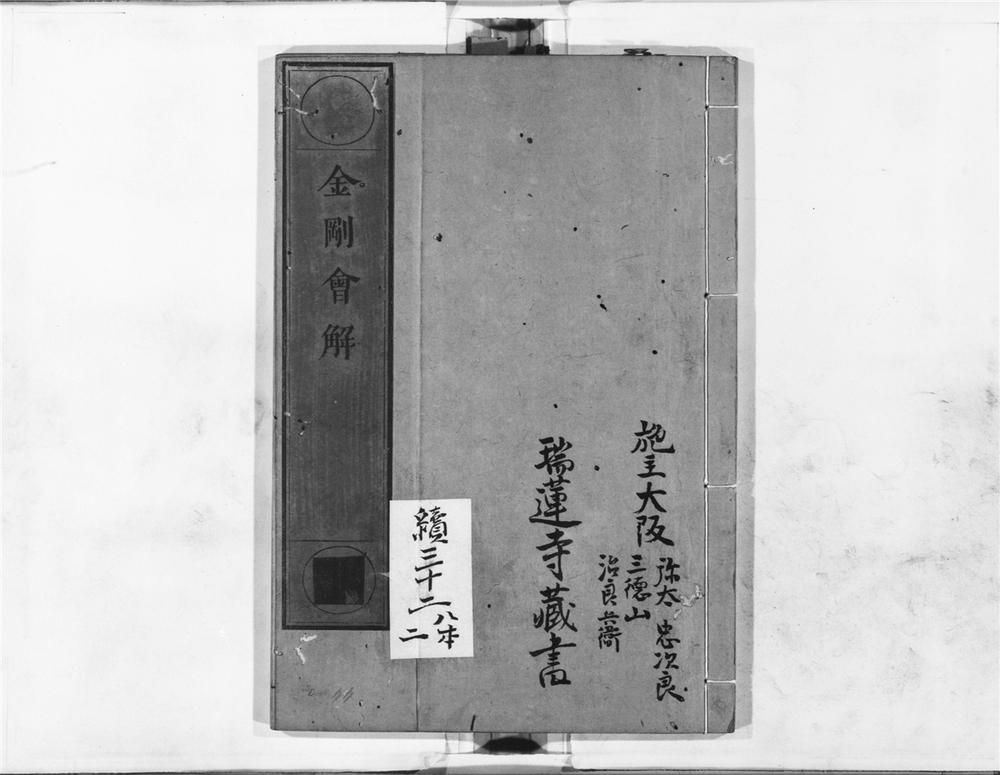 施主大阪
弥太 忠次良
三德山
治良兵衛
瑞蓮寺藏書
金剛會解
續三十二
八本
二